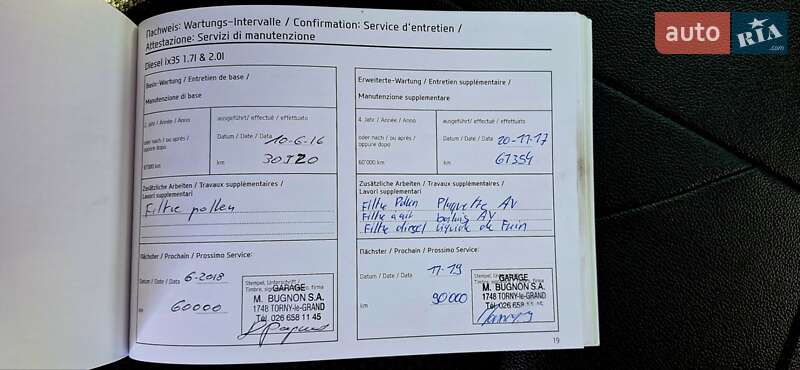 Nachweis: Wartungs-Intervalle / Confirmation: Service d'entretien /
Attestazione: Servizi di manutenzione
Diesel ix35 1.7l & 2.0l
auto RIA.com
Basis-Wartung / Entretien de base /
Manutenzione di base
2. Jahr / Année / Anno
ausgeführt/ effectué / effettuato
oder nach / ou après /
oppure dopo
Datum / Date / Data 10-6-16
60'000 km
km 30520
Zusätzliche Arbeiten / Travaux supplémentaires /
Lavori supplementari
Filtre pollen
Nächster / Prochain / Prossimo Service:
Datum / Date / Data 6-2018
km 60000
Stempel, Unterschrift /
Timbre, firma
GARAGE
M. BUGNON S.A.
1748 TORNY-le-GRAND
Tél. 026 658 11 45
Erweiterte-Wartung / Entretien supplémentaire /
Manutenzione supplementare
4. Jahr / Année / Anno
ausgeführt/ effectué / effettuato
oder nach / ou après /
oppure dopo
Datum / Date / Data 20-11-17
60'000 km
km 61354
Zusätzliche Arbeiten / Travaux supplémentaires /
Lavori supplementari
Filtre Pollen Plaquette AV
Filtre à air AV
Filtre diesel Liquide de Frein
Nächster / Prochain / Prossimo Service:
Datum / Date / Data 11-19
km 90000
Stempel,
Timbre, firma
GARAGE
M. BUGNON S.A.
1748 TORNY-le-GRAND
Tél. 026 658 11 45
19